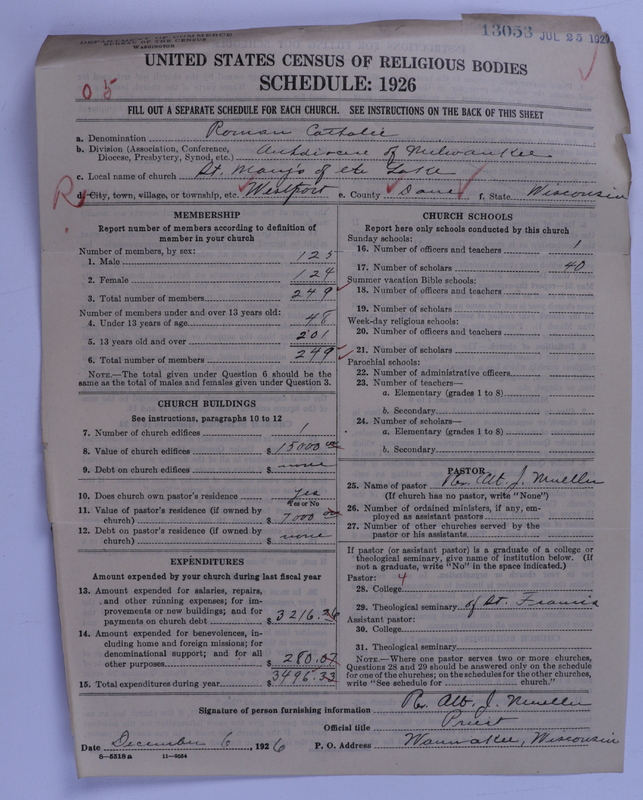 DEPARTMENT OF COMMERCE
BUREAU OF THE CENSUS
WASHINGTON
13053 JUL 25 192
UNITED STATES CENSUS OF RELIGIOUS BODIES
SCHEDULE: 1926
05
FILL OUT A SEPARATE SCHEDULE FOR EACH CHURCH. SEE INSTRUCTIONS ON THE BACK OF THIS SHEET
a. Denomination Roman Catholic
b. Division (Association, Conference, Diocese, Presbytery, Synod, etc.) Archdiocese of Milwaukee
c. Local name of church St. Mary's of the Lake
R d. City, town, village, or township, etc. Westport e. County Dane f. State Wisconsin
MEMBERSHIP
Report number of members according to definition of
member in your church
Number of members, by sex:
1. Male 125
2. Female 124
3. Total number of members 249
Number of members under and over 13 years old:
4. Under 13 years of age 48
5. 13 years old and over 201
6. Total number of members 249
NOTE.—The total given under Question 6 should be
same as the total of males and females given under Question 3.
CHURCH BUILDINGS
See instructions, paragraphs 10 to 12
7. Number of church edifices 1
8. Value of church edifices $ 15000 00
9. Debt on church edifices $ none
10. Does church own pastor's residence Yes
Yes or No
11. Value of pastor's residence (if owned by
church) $ 7000 00
12. Debt on pastor's residence (if owned by
church) $ none
EXPENDITURES
Amount expended by your church during last fiscal year
13. Amount expended for salaries, repairs,
and other running expenses; for im-
provements or new buildings; and for
payments on church debt $ 3216.26
14. Amount expended for benevolences, in-
cluding home and foreign missions; for
denominational support; and for all
other purposes 280.07
15. Total expenditures during year $ 3496.33
CHURCH SCHOOLS
Report here only schools conducted by this church
Sunday schools:
16. Number of officers and teachers 1
17. Number of scholars 40
Summer vacation Bible schools:
18. Number of officers and teachers
19. Number of scholars
Week-day religious schools:
20. Number of officers and teachers
21. Number of scholars
Parochial schools:
22. Number of administrative officers
23. Number of teachers—
a. Elementary (grades 1 to 8)
b. Secondary
24. Number of scholars—
a. Elementary (grades 1 to 8)
b. Secondary
PASTOR
25. Name of pastor Rev. Alb. J. Mueller
(If church has no pastor, write "None")
26. Number of ordained ministers, if any, em-
ployed as assistant pastors
27. Number of other churches served by the
pastor or his assistants
If pastor (or assistant pastor) is a graduate of a college or
theological seminary, give name of institution below. (If
not a graduate, write "No" in the space indicated.)
Pastor: 4
28. College
29. Theological seminary of St. Francis
Assistant pastor:
30. College
31. Theological seminary
NOTE.—Where one pastor serves two or more churches,
Questions 28 and 29 should be answered only on the schedule
for one of the churches; on the schedules for the other churches,
write "See schedule for church."
Signature of person furnishing information Rev. Alb. J. Mueller
Official title Priest
Date December 6, 1926 P. O. Address Waunakee, Wisconsin
8—5518a 11—9054